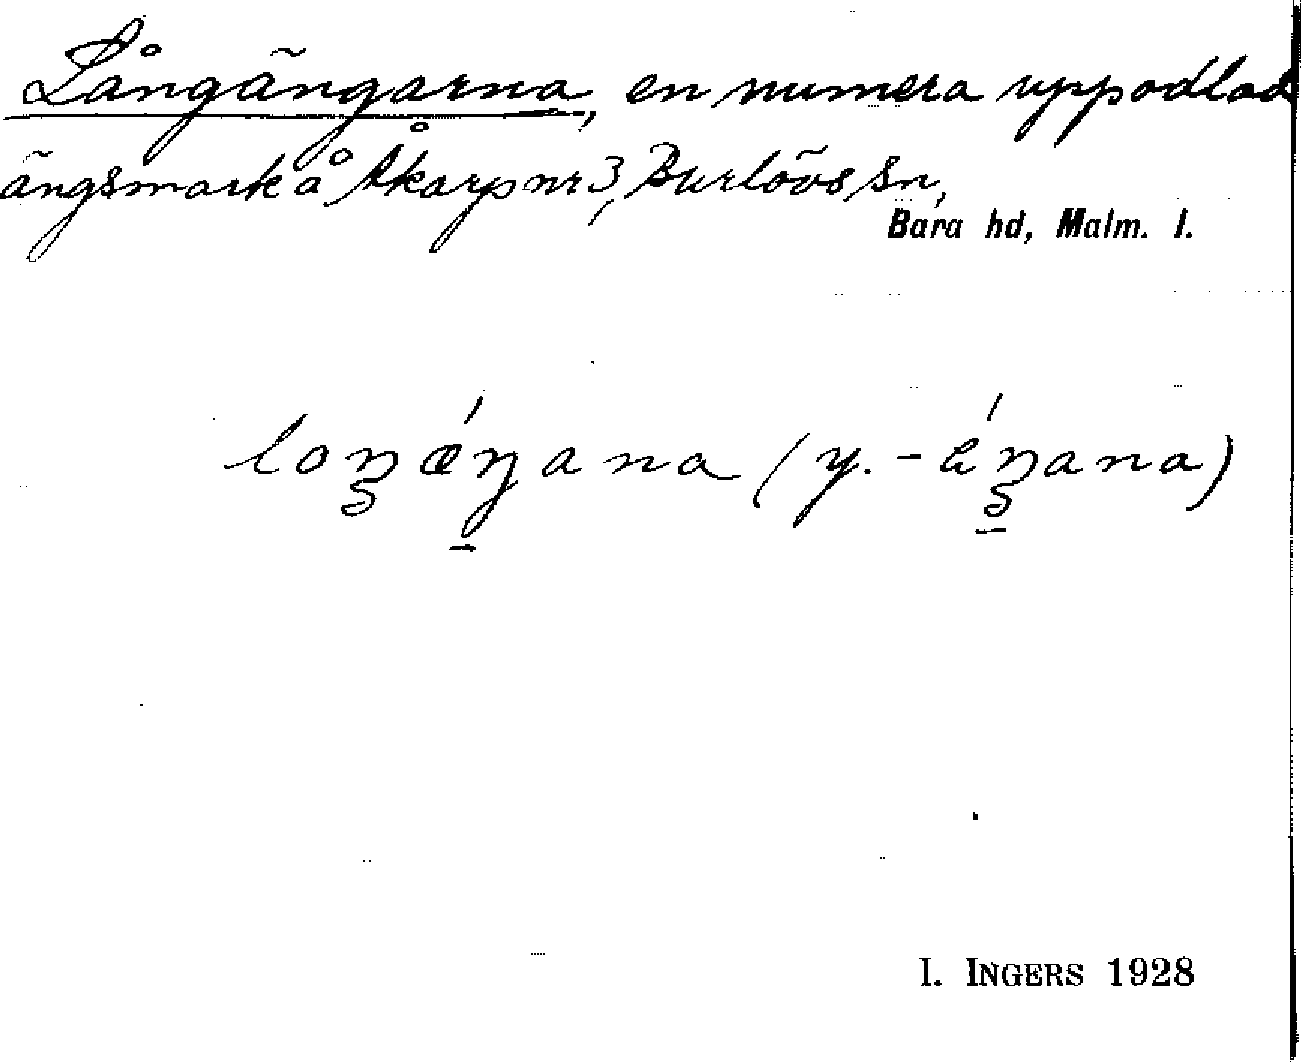 Långängarna, en numera uppodlad
ängsmark å Åkarp nr 3, Burlövs sn,
Bara hd, Malm. l.
loŋǽŋana (y. -éŋana)
I. INGERS 1928